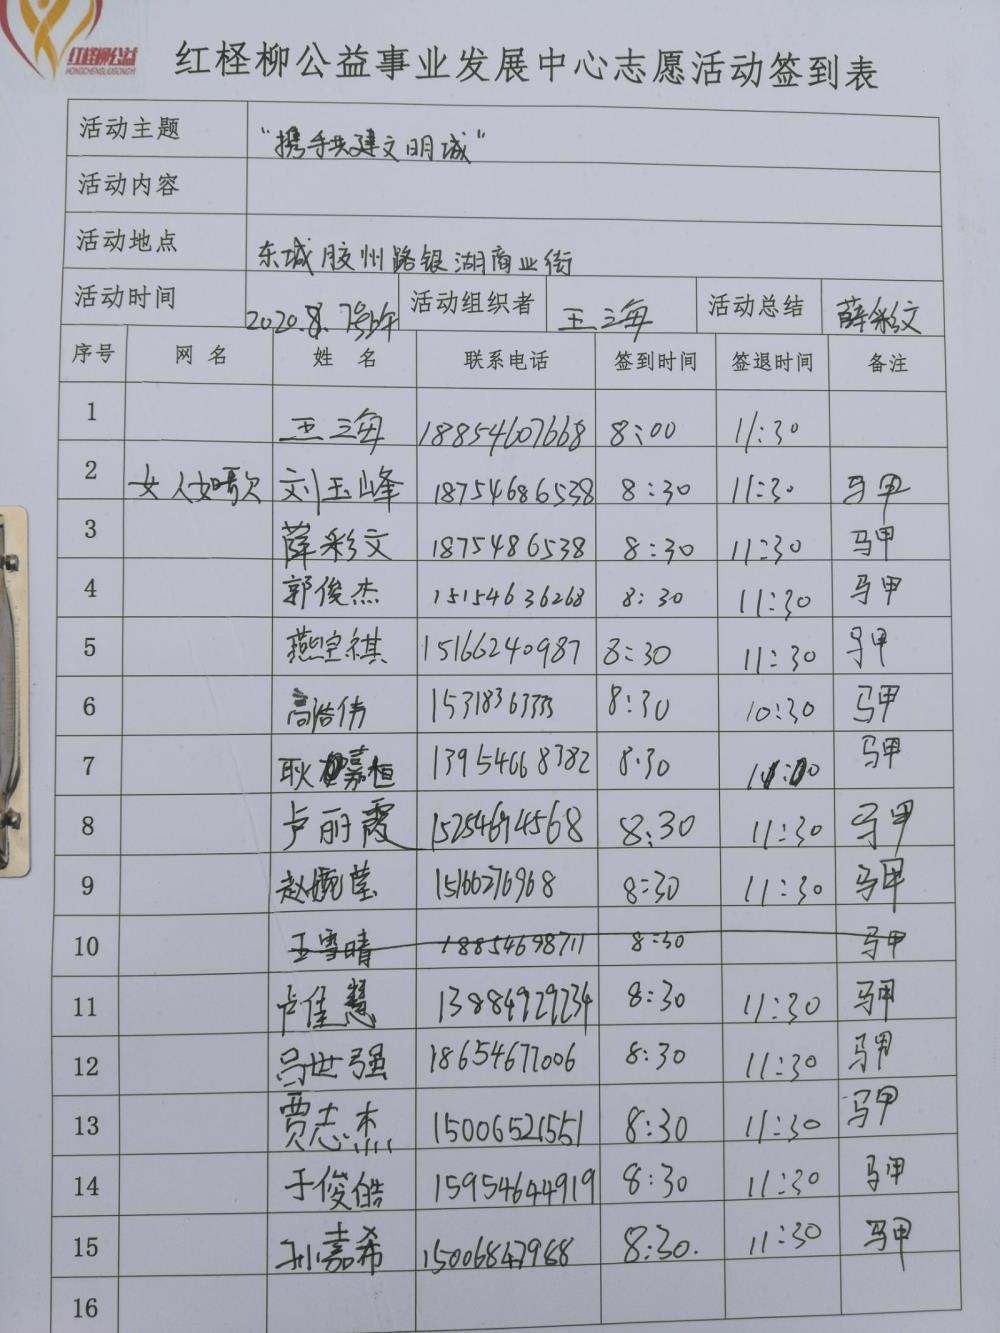 红柽柳公益
HONGCHENGLIUGONGYI
红柽柳公益事业发展中心志愿活动签到表
活动主题 "携手共建文明城"
活动内容
活动地点 东城胶州路银湖商业街
活动时间 2020.8.7号上午 活动组织者 王三海 活动总结 薛彩文
序号 网名 姓名 联系电话 签到时间 签退时间 备注
1 王三海 18854607668 8:00 11:30
2 女人如歌 刘玉峰 18754686538 8:30 11:30 马甲
3 薛彩文 1875486538 8:30 11:30 马甲
4 郭俊杰 15154636268 8:30 11:30 马甲
5 燕 祺 15166240987 8:30 11:30 马甲
6 高浩伟 15318363333 8:30 10:30 马甲
7 耿嘉恒 13954668382 8:30 马甲
8 卢丽霞 8:30 11:30 马甲
9 赵婉莹 15166276968 8:30 11:30 马甲
10 王雪晴 18854698711 8:30 马甲
11 卢佳慧 13884929234 8:30 11:30 马甲
12 吕世强 18654677006 8:30 11:30 马甲
13 贾志杰 15006521551 8:30 11:30 马甲
14 于俊皓 15954644919 8:30 11:30 马甲
15 孙嘉希 15006847988 8:30. 11:30 马甲
16